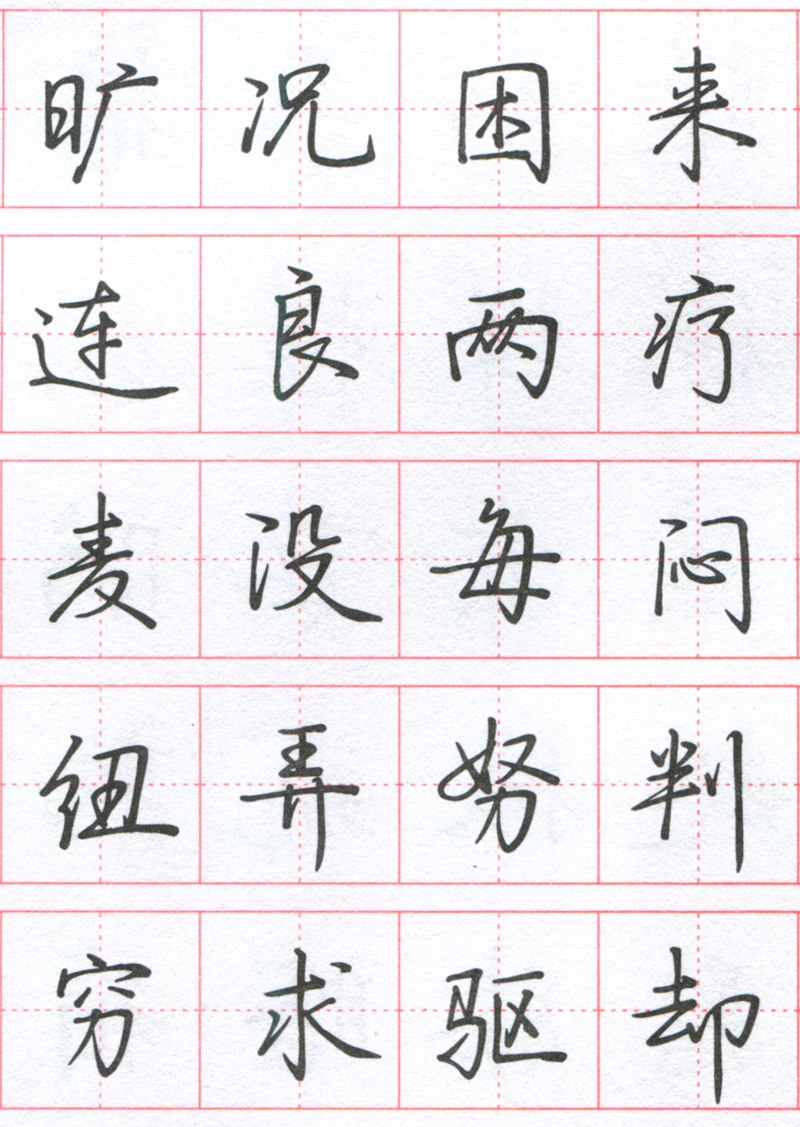 旷况困来
连良两疗
麦没每闷
纽弄努判
穷求驱却